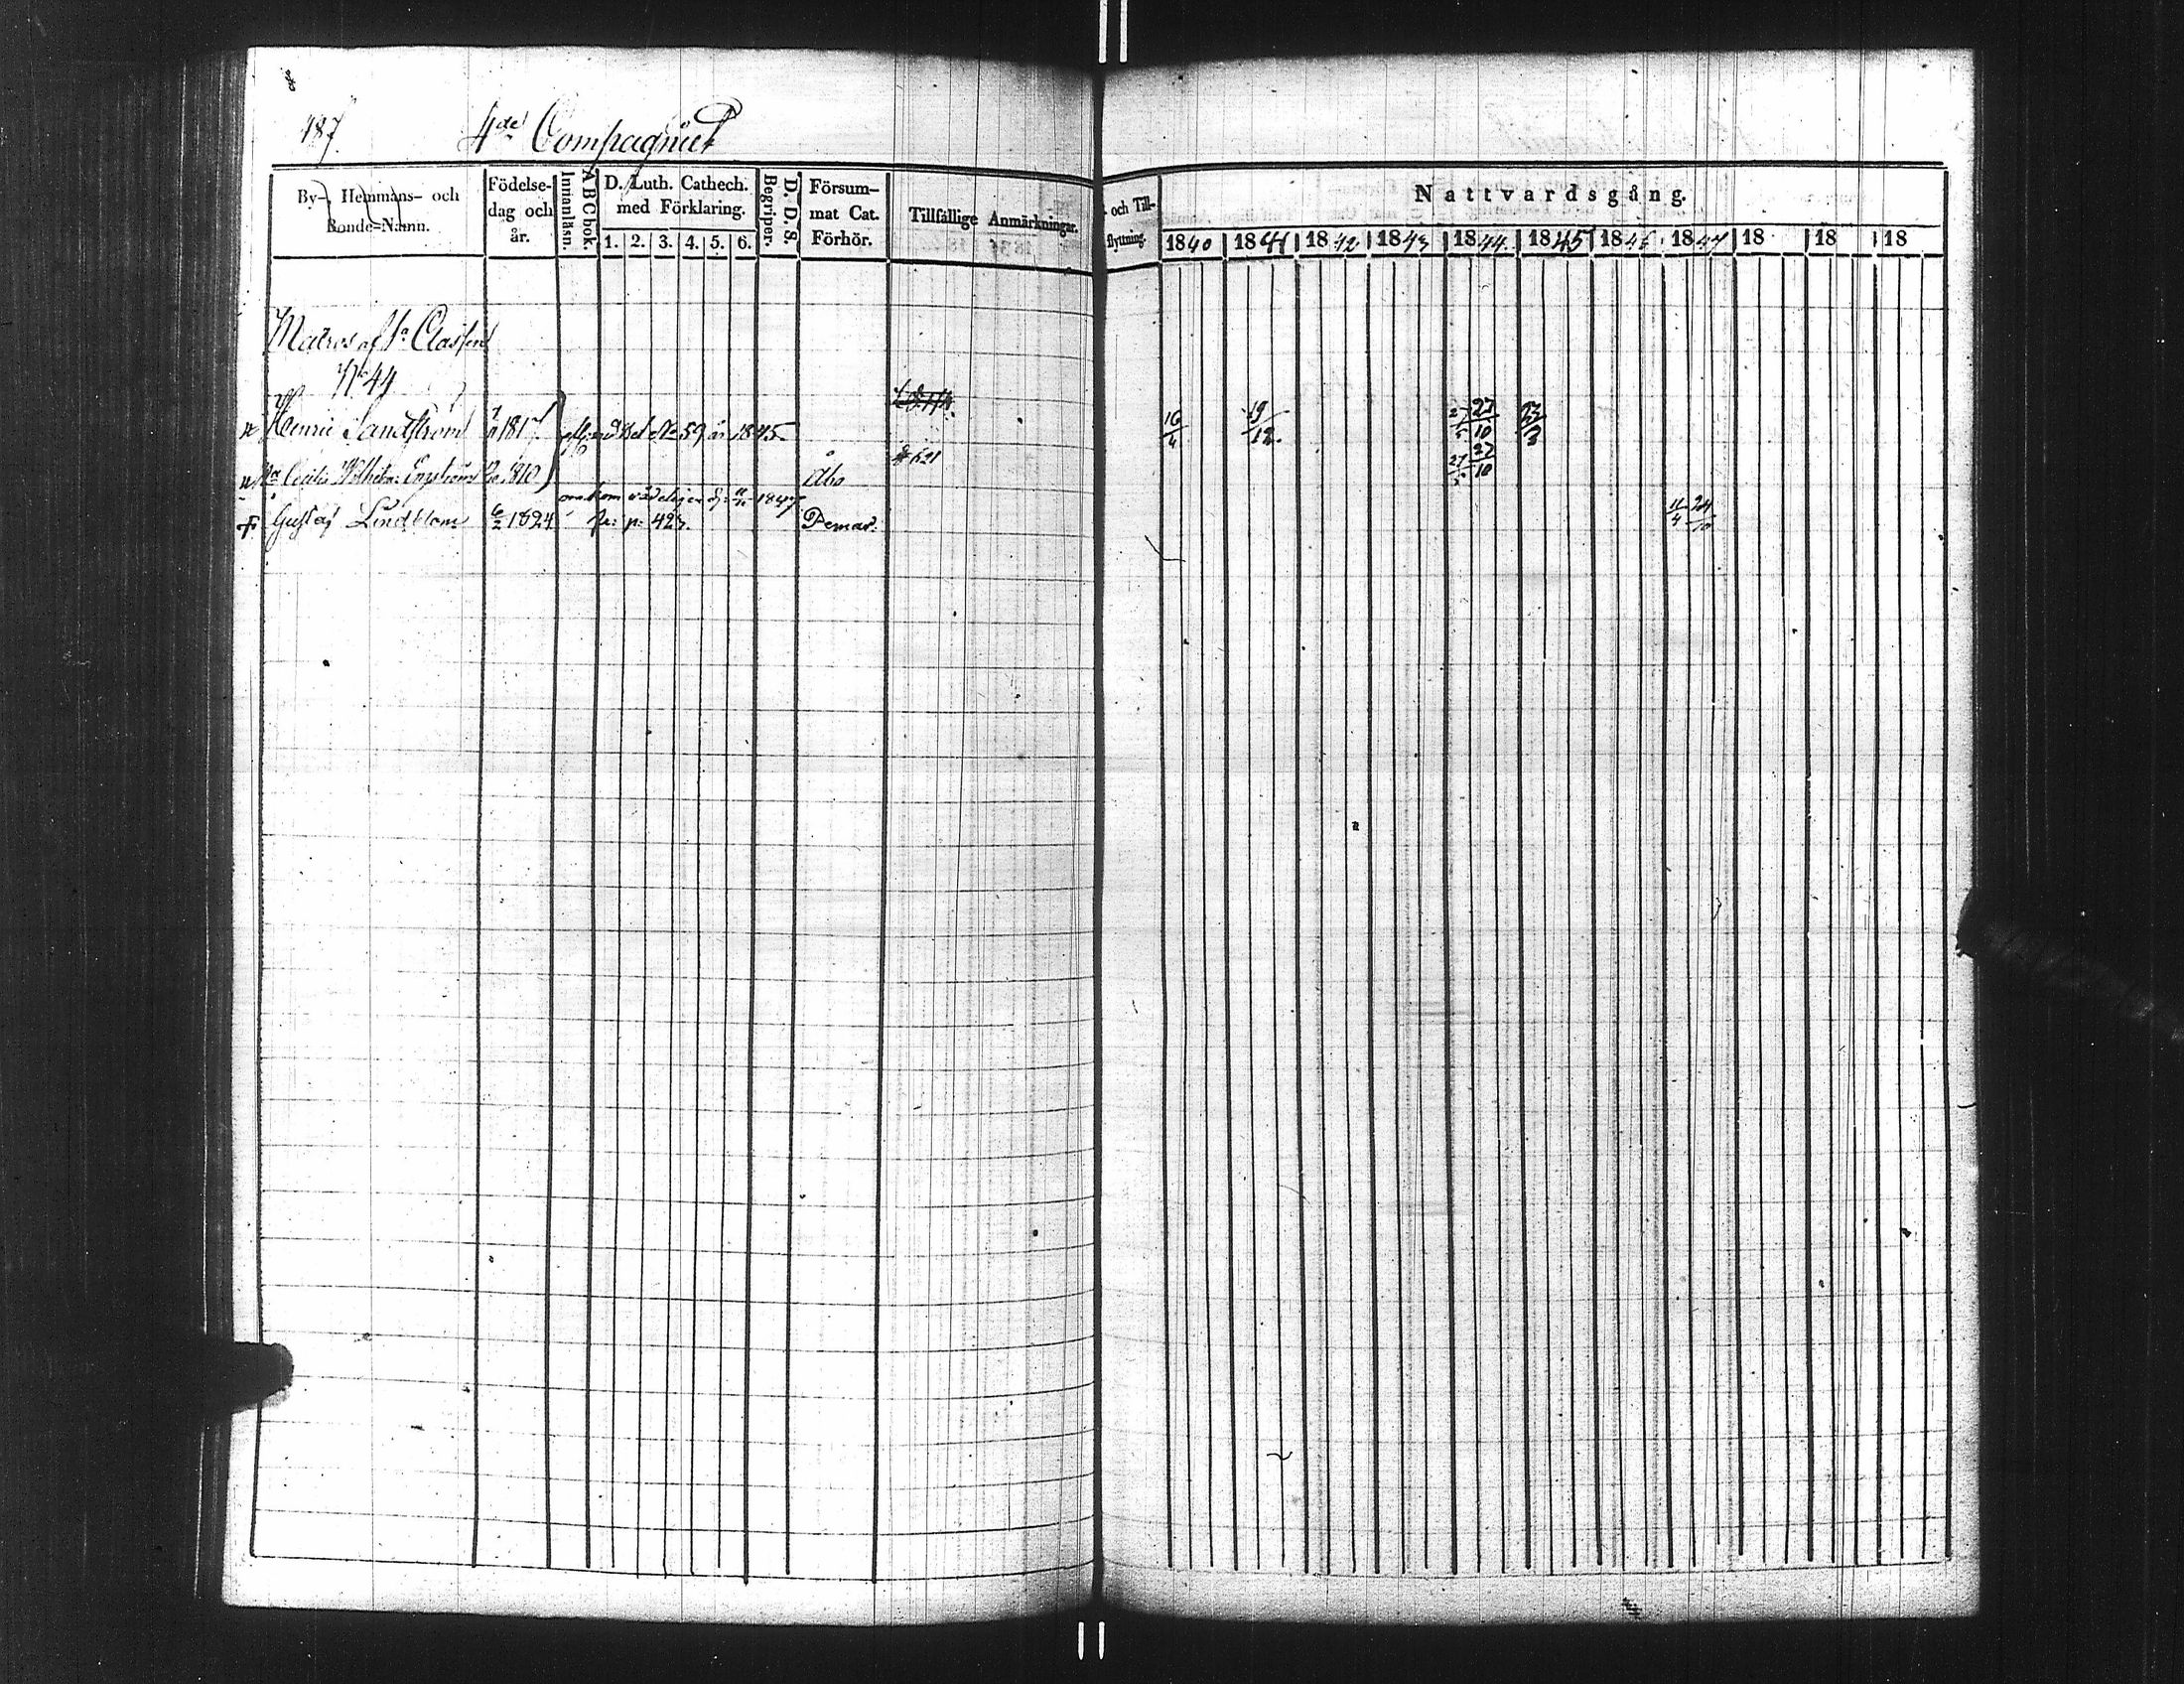 187.
4de Compagniet
By- Hemmans- och Bonde=Namn.
Födelse-dag och år.
Innanläsn.
A B C bok.
D. Luth. Cathech. med Förklaring.
1. 2. 3. 4. 5. 6.
Begriper.
D. D. S.
Försum-mat Cat. Förhör.
Tillfällige Anmärkningar.
och Till-flyttning.
Nattvardsgång.
1840 1841 1842 1843 1844 1845 1846 1847 18 18 18
Matros af 1a Classen
No 44
Henric Sandström 1817 No 59 år 1845. 16/4 19/12. 27/5 27/10 23/3
Cecilia Wilhelm: Engström 1810 Åbo 27/5 27/10
omkom 1847
Gustaf Lindblom 6/2 1824 p: 423. Pemar: 11/4 24/10